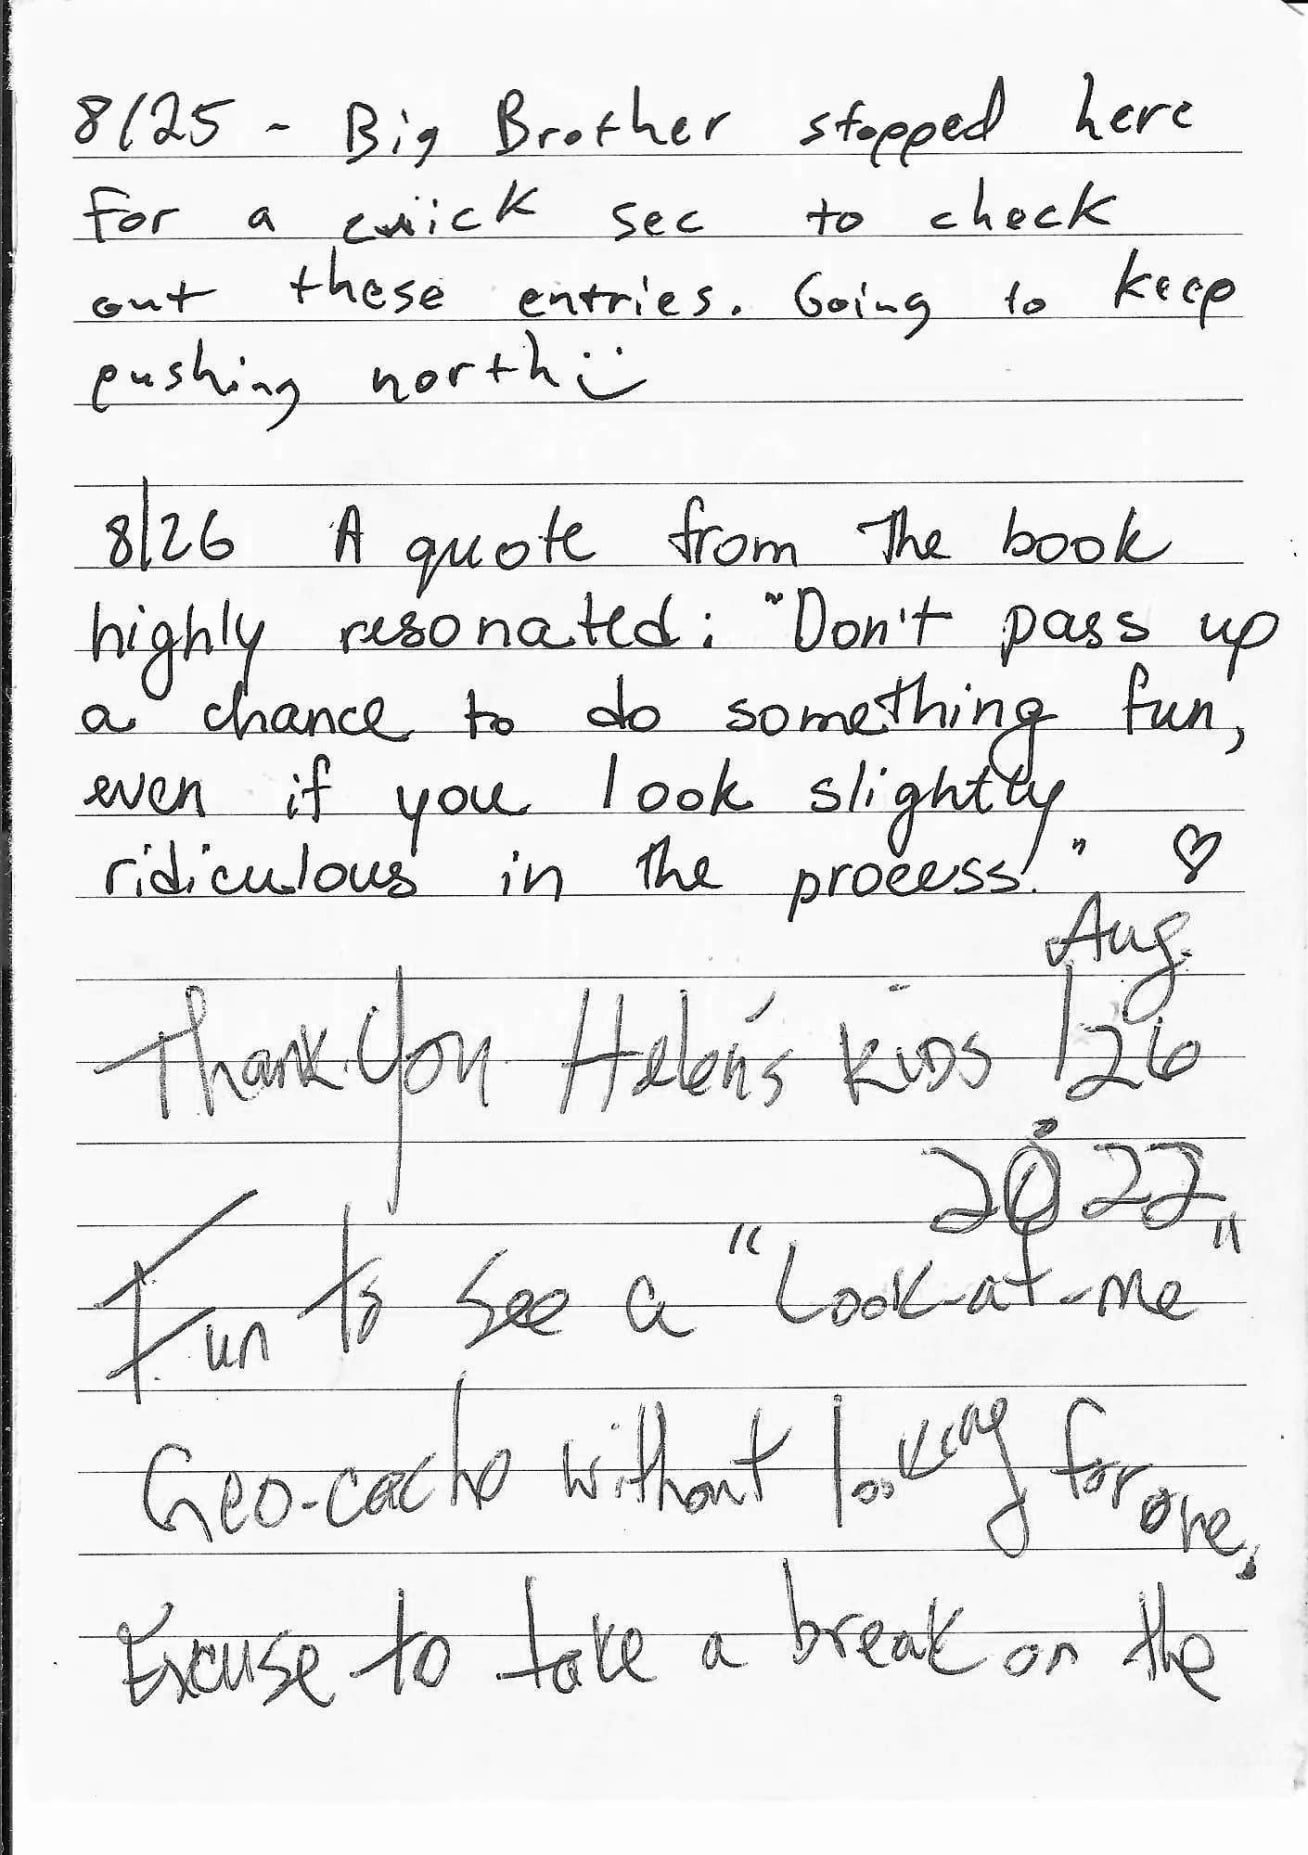 8/25 - Big Brother stopped here
for a quick sec to check
out these entries. Going to keep
pushing north :)
8/26 A quote from the book
highly resonated: "Don't pass up
a chance to do something fun,
even if you look slightly
ridiculous in the process." ♡
Aug.
Thank You Helen's Kids /26
2022
Fun to see a "Look-at-me"
Geo-cache without looking for one.
Excuse to take a break on the